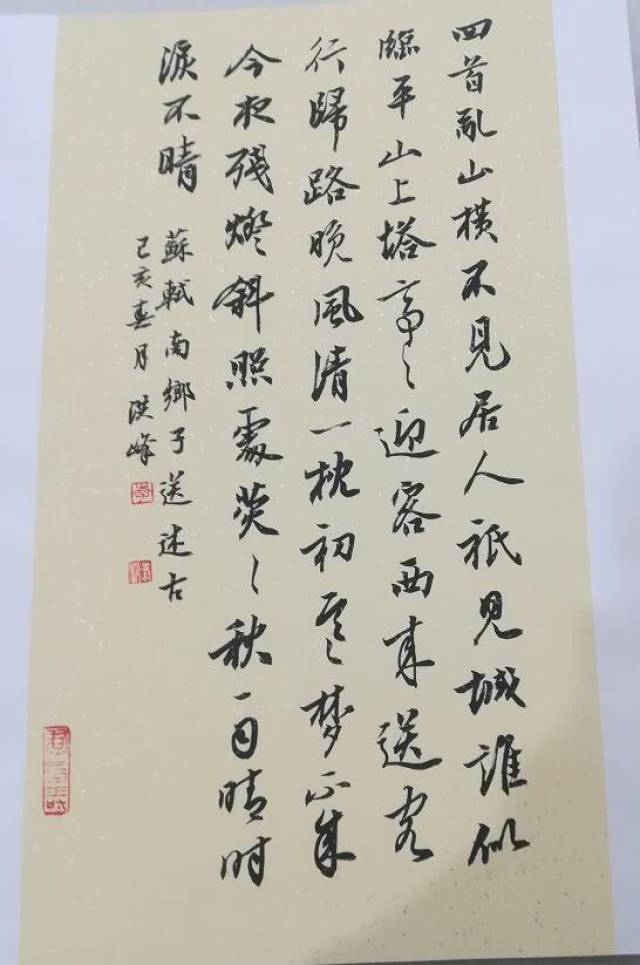 回首亂山橫不見居人祗見城誰似
臨平山上塔亭〻迎客西來送客
行歸路晚風清一枕初寒梦不成
今夜殘燈斜照處熒〻秋雨晴时
淚不晴
蘇軾南鄉子送述古
己亥春月洪峰